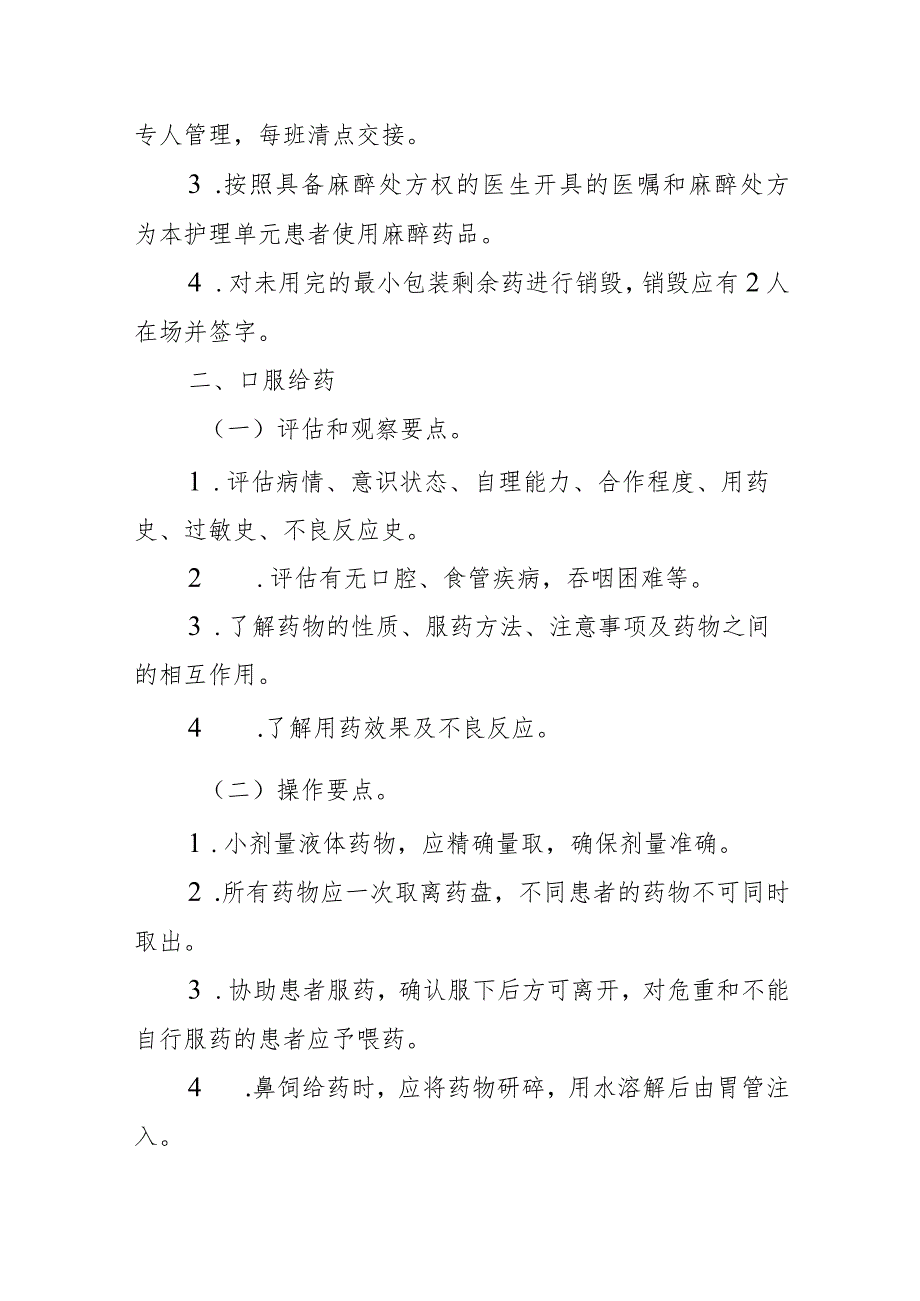 专人管理，每班清点交接。
3 .按照具备麻醉处方权的医生开具的医嘱和麻醉处方
为本护理单元患者使用麻醉药品。
4 . 对未用完的最小包装剩余药进行销毁，销毁应有2人
在场并签字。
二、口服给药
（一）评估和观察要点。
1 .评估病情、意识状态、自理能力、合作程度、用药
史、过敏史、不良反应史。
2 .评估有无口腔、食管疾病，吞咽困难等。
3 .了解药物的性质、服药方法、注意事项及药物之间
的相互作用。
4 .了解用药效果及不良反应。
（二）操作要点。
1 .小剂量液体药物，应精确量取，确保剂量准确。
2 .所有药物应一次取离药盘，不同患者的药物不可同时
取出。
3 . 协助患者服药，确认服下后方可离开，对危重和不能
自行服药的患者应予喂药。
4 .鼻饲给药时，应将药物研碎，用水溶解后由胃管注
入。